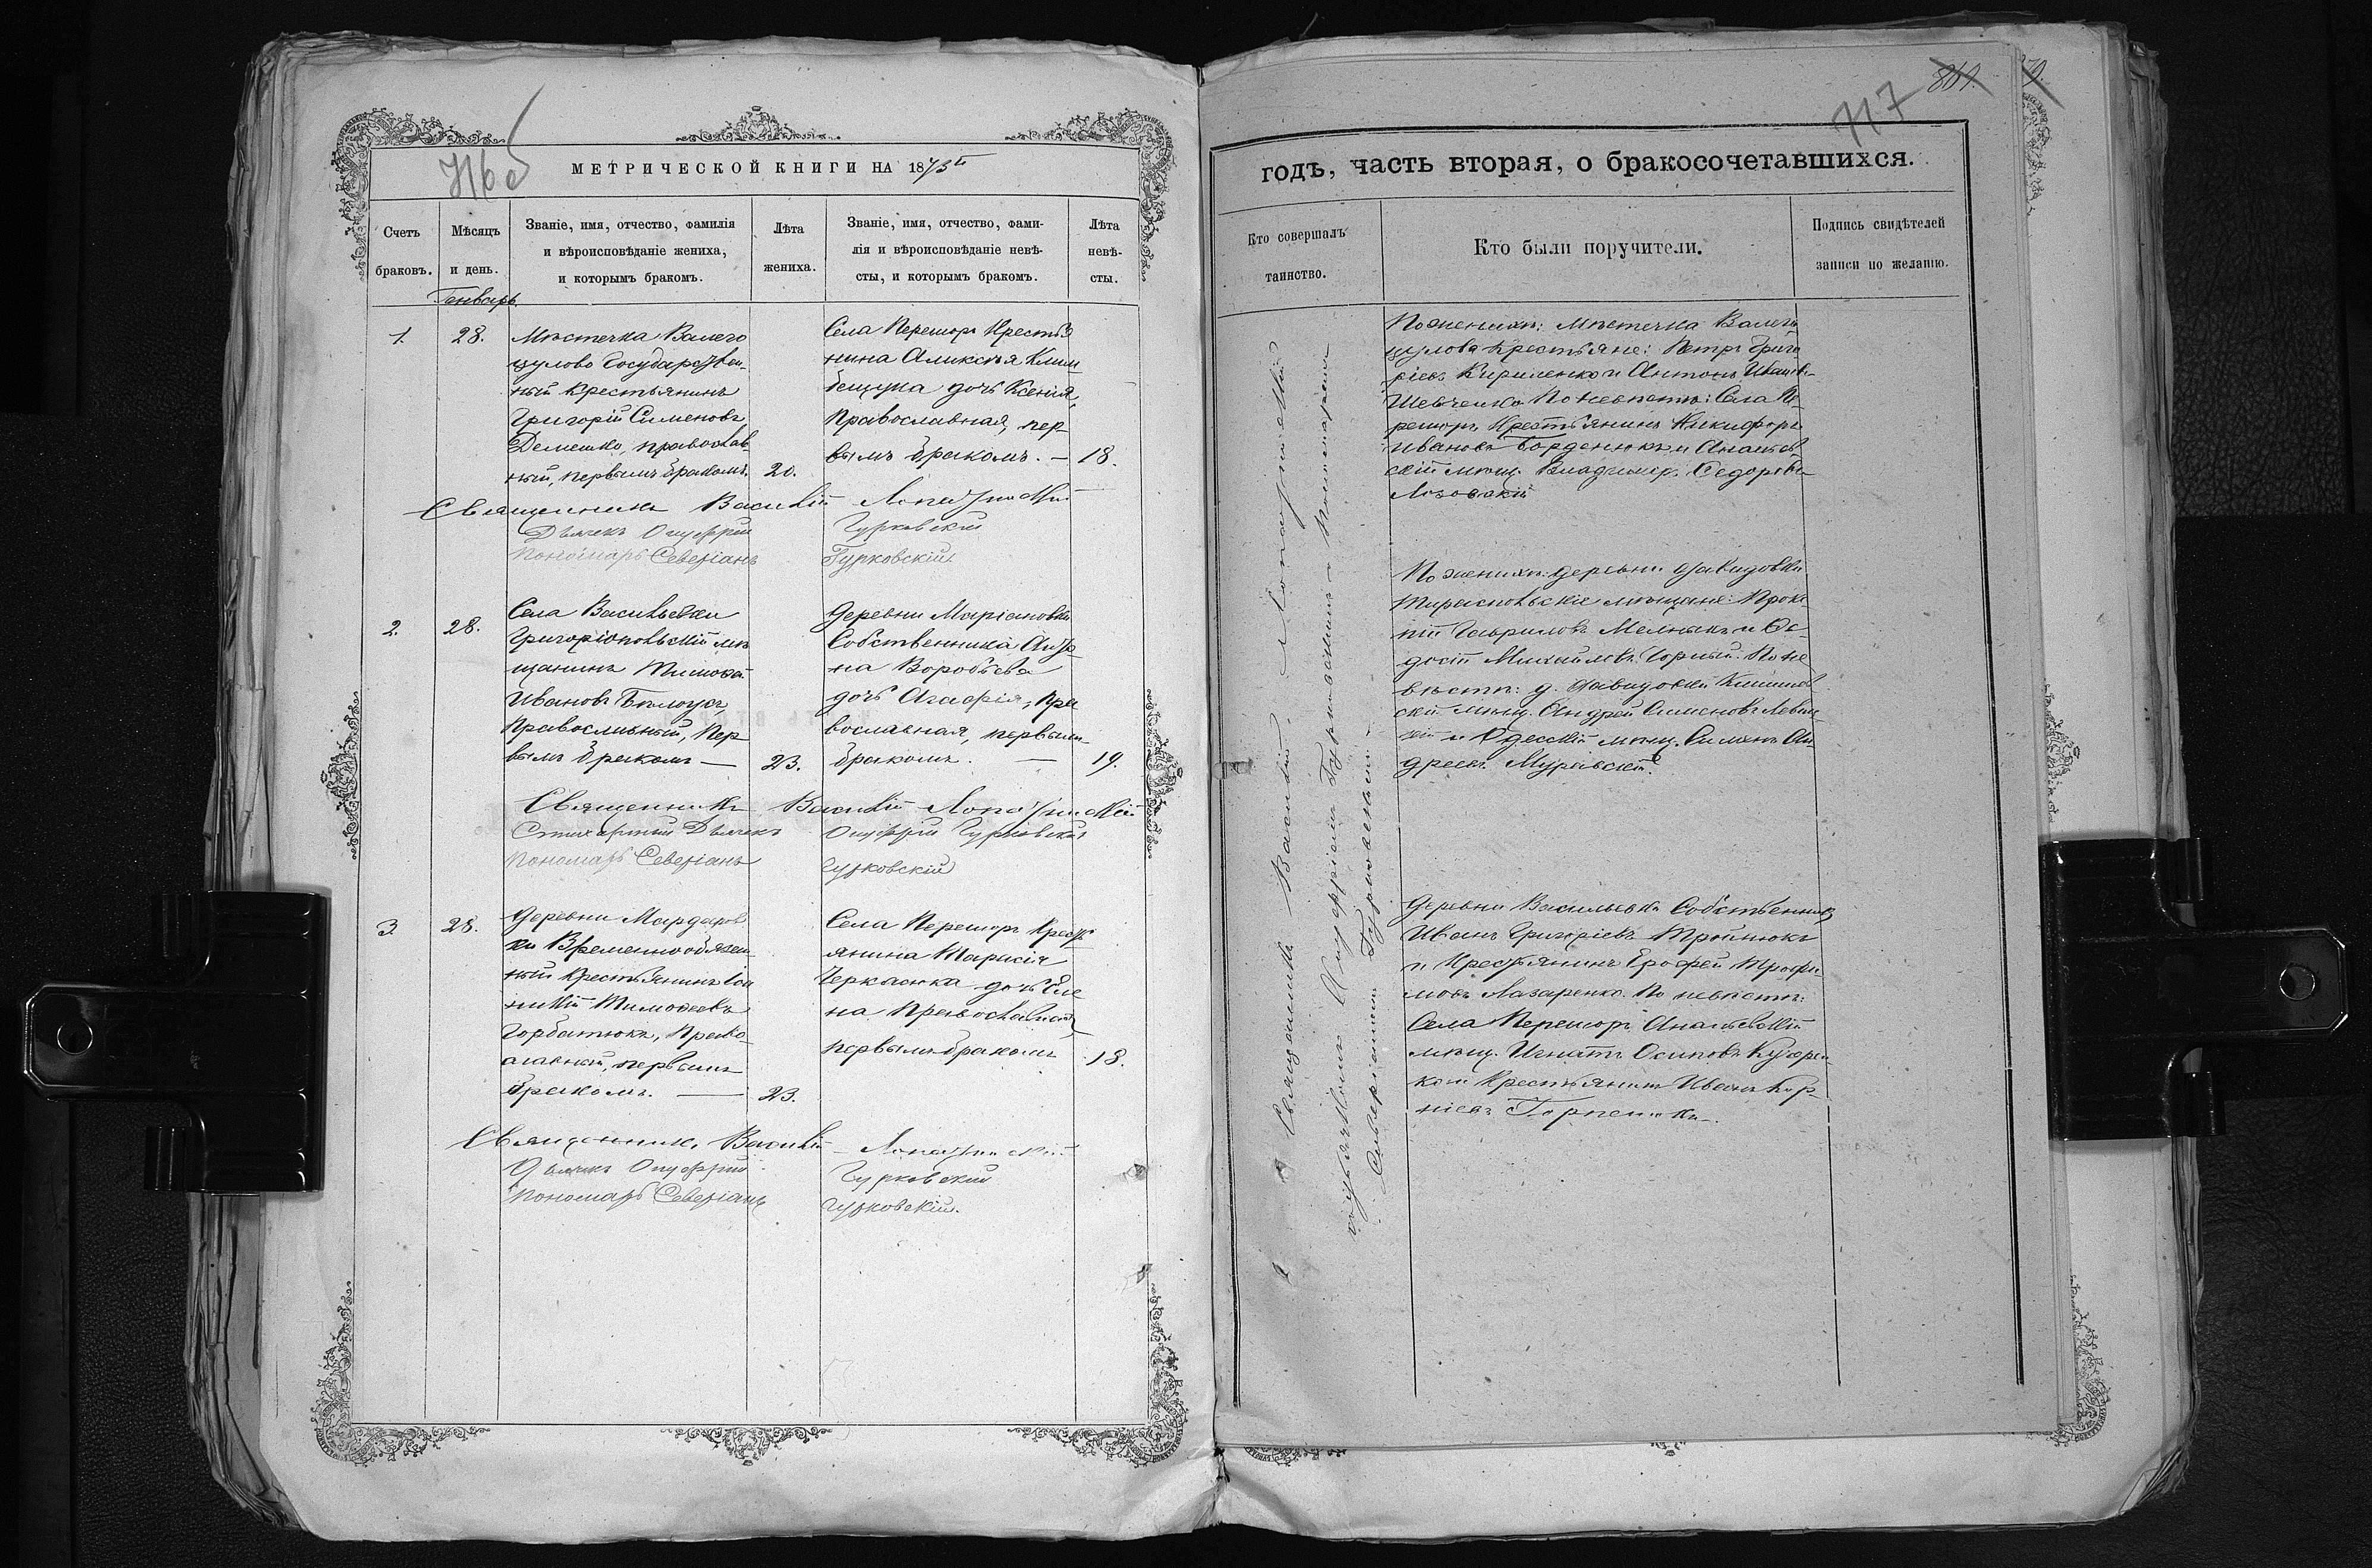 МЕТРИЧЕСКОЙ КНИГИ НА 1873й
Счетъ браковъ.
Мѣсяцъ и день.
Званіе, имя, отчество, фамилія
и вѣроисповѣданіе жениха,
и которымъ бракомъ.
Лѣта жениха.
Званіе, имя, отчество, фами-
лія и вѣроисповѣданіе невѣ-
сты, и которымъ бракомъ.
Лѣта невѣ-
сты.
Генварь
1. 28.
Мѣстечка Валего
цулово Государствен-
ный крестьянинъ
Григорій Сименовъ
Демешко, православ
ный, первымъ бракомъ. 20.
Села Перешоръ Крестья
нина Аликсѣя Клим
дочь Ксенія,
Православная, пер-
вымъ бракомъ. — 18.
Священникъ Василій Лопатинскій
Дьячекъ Онуфрій Гурковскій
Пономарь Северіанъ Гурковскій
2. 28.
Села Васильевки
Григоріопольскій мѣ
щанинъ Тимофей
Ивановъ Бѣлоусъ,
Православный, Пер
вымъ бракомъ — 23.
Деревни Маріановки
Собственника
на Воробьева
дочь Агафія, Пра
вославная, первымъ
бракомъ. — 19.
Священникъ Василій Лопатинскій
Стихарный Дьячекъ Онуфрій Гурковскій
Пономарь Северіанъ Гурковскій
3. 28.
Деревни Мардаров
ки Временнообязан
ный Крестьянинъ Іоа
нникій Тимофеевъ
Горбатюкъ, Право-
славный, первымъ
бракомъ. — 23.
Села Перешоръ Крест
янина Тарасія
дочь Еле
на Православная
первымъ бракомъ 18.
Священникъ Василій Лопатинскій
Дьячекъ Онуфрій Гурковскій
Пономарь Северіанъ Гурковскій.
717
годъ, часть вторая, о бракосочетавшихся.
Кто совершалъ
таинство.
Кто были поручители.
Подпись свидѣтелей
записи по желанію.
Священникъ Василій Лопатинскій
Онуфріемъ Гурковскимъ и Пономаремъ
Северіаномъ Гурковскимъ.
По женихѣ: Мѣстечка Валего
цулова крестьяне: Петръ Григо
ріевъ Кириленко и Антонъ Иванов-
Шевченко По невѣстѣ: Села Пе-
решоръ Крестьянинъ Никифоръ
Ивановъ Борденюкъ и Ананьев
скій мѣщ. Владимиръ Федоровъ
Лозовскій
По женихѣ: деревни Давидовки
Тираспольскіе мѣщане: Проко
пій Гавриловъ Мельникъ и Фе-
досій Михайловъ Чорный. По не
вѣстѣ: д. Давидовки Кишинев
скій мѣщ. Андрей Сименовъ Левиц
кій и Одесскій мѣщ. Симонъ Ан
дреевъ Муравскій.
Деревни Васильевки Собственникъ
Иванъ Григоріевъ Тройнюкъ
и Крестьянинъ Ерофей Трофи-
мовъ Лазаренко. По невѣстѣ:
Села Перешоръ Ананьевскій
мѣщ. Игнатъ Осиповъ Кухарен
ко и Крестьянинъ Иванъ Кор-
ніевъ